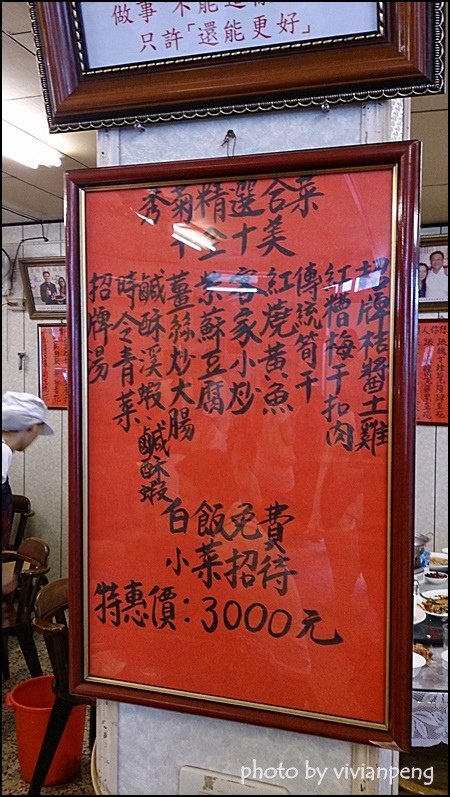 做事 不能這
只許「還能更好」
秀菊精選合菜
十全十美
招牌桔醬土雞
紅糟梅干扣肉
傳統筍干
紅燒黃魚
客家小炒
紫蘇豆腐
薑絲炒大腸
鹹酥溪蝦、鹹酥蝦
時令青菜
招牌湯
白飯免費
小菜招待
特惠價：3000元
photo by vivianpeng